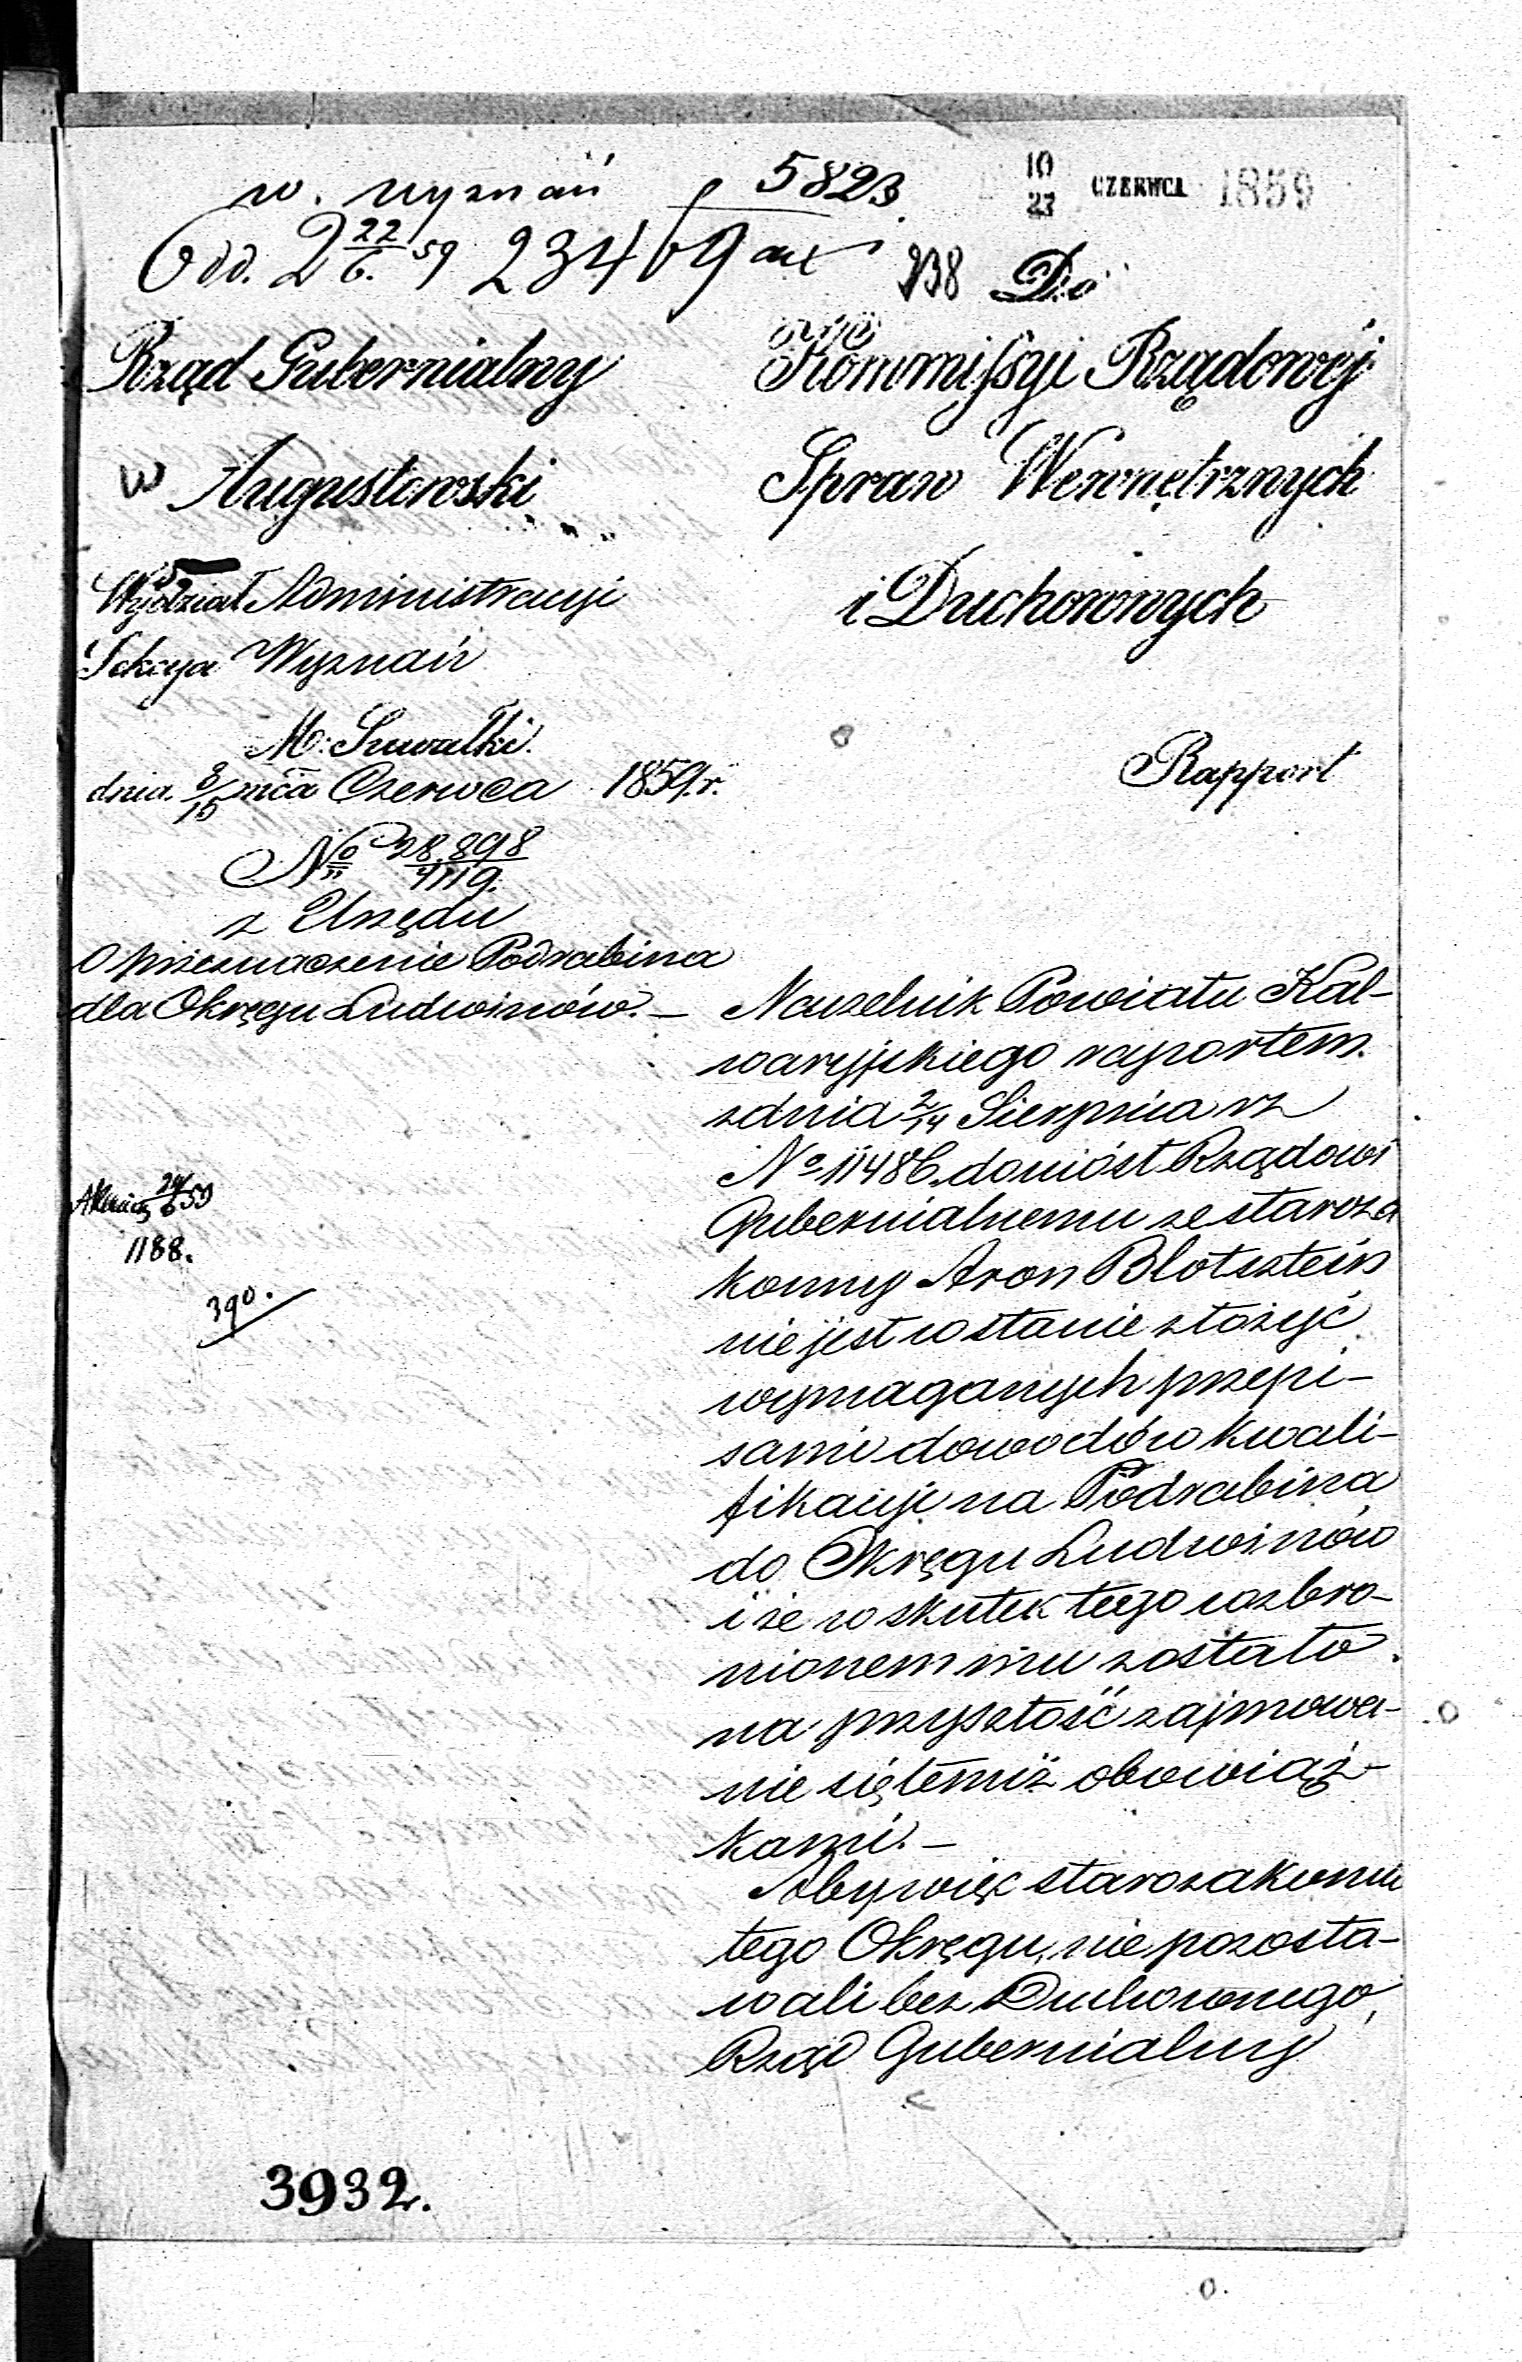 w. wyznań 5823.
10/23 CZERWCA 1859
Odd. 2 22/6. 59 23469
238 Do
Rząd Gubernialny
Augustowski
Wydział Administracyi
Sekcya Wyznań
M. Suwałki
dnia 3/15 mca Czerwca 1859 r.
No 28.898/4119.
z Urzędu
O przeznaczenie Podrabina
dla Okręgu Ludwinów. –
24/6 59
1188.
390.
Kommissyi Rządowéj
Spraw Wewnętrznych
i Duchownych
Rapport
Naczelnik Powiatu Kal-
waryjskiego raportem
z dnia 2/14 Sierpnia rz
No 11486. doniósł Rządowi
Gubernialnemu ze staroza
konny Aron Blotsztein
nie jest w stanie złożyć
wymaganych przepi-
sami dowodów kwali-
fikacyi na Podrabina
do Okręgu Ludwinów
i że w skutek tego wzbro-
nionem mu zostało
na przyszłość zajmowa-
nie się temiż obowiąz-
kami. –
Aby więc starozakonni
tego Okręgu, nie pozosta-
wali bez Duchownego,
Rząd Gubernialny
3932.